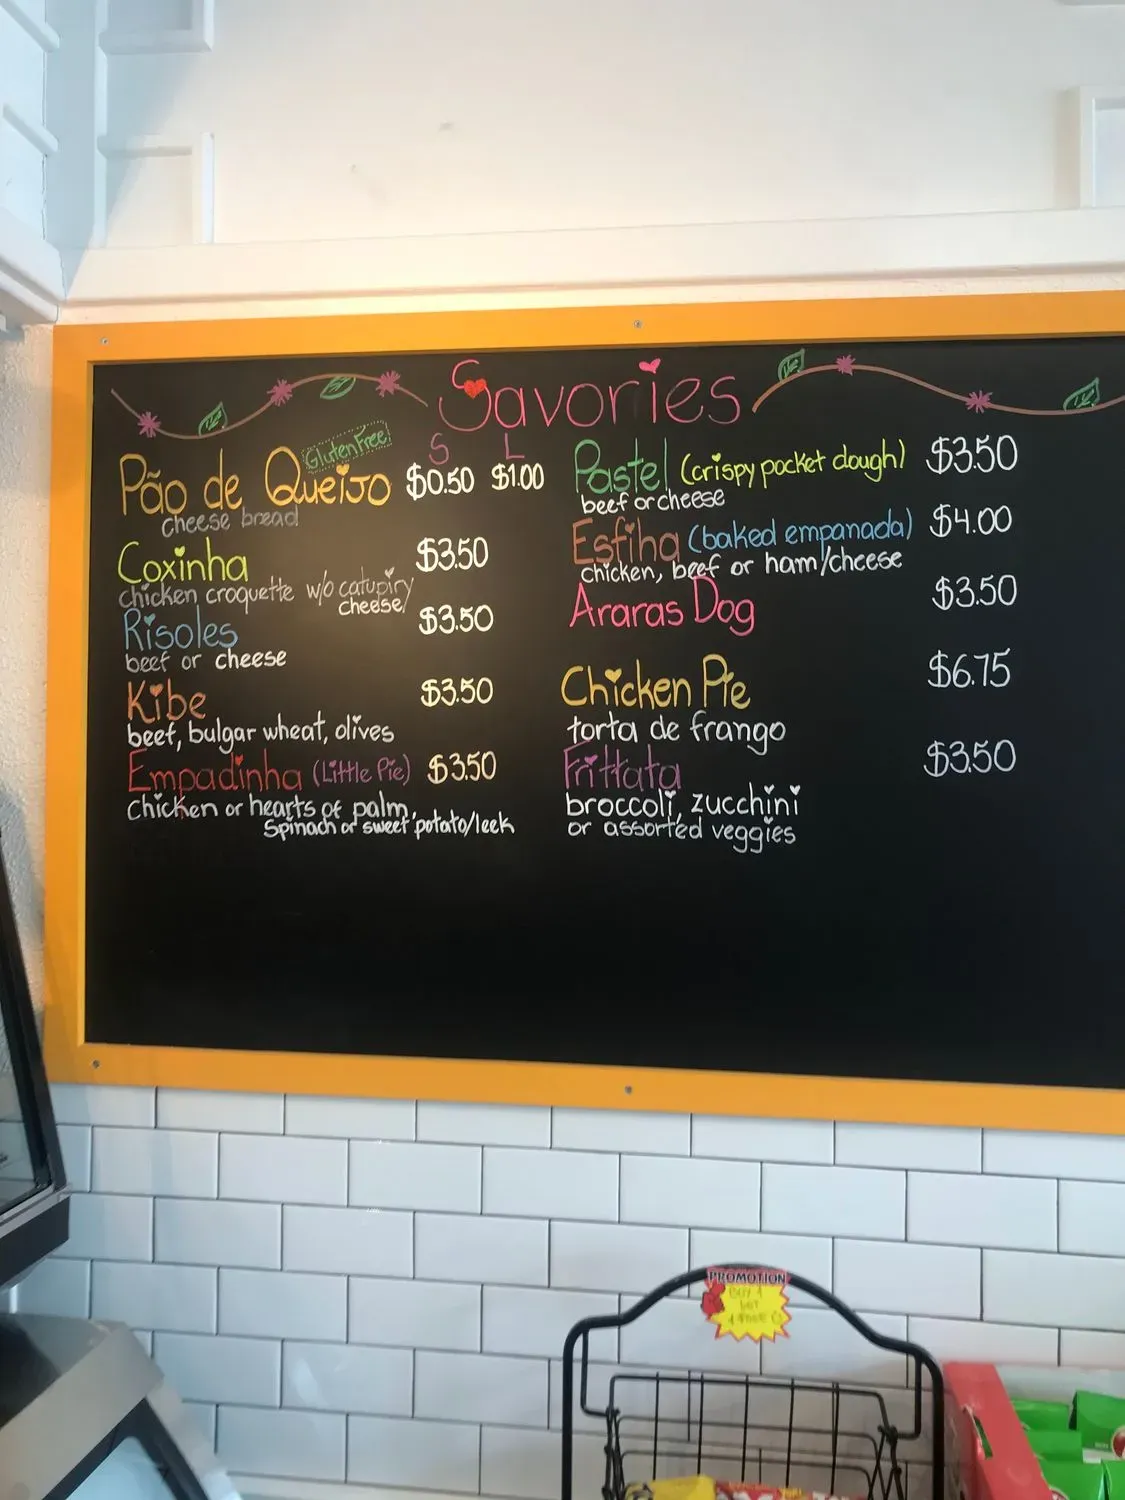 Savories
Gluten Free S L
Pão de Queijo $0.50 $1.00
cheese bread
Coxinha $3.50
chicken croquette w/o catupiry
cheese
Risoles $3.50
beef or cheese
Kibe $3.50
beef, bulgar wheat, olives
Empadinha (Little Pie) $3.50
chicken or hearts of palm,
Spinach or sweet potato/leek
Pastel (crispy pocket dough) $3.50
beef or cheese
Esfiha (baked empanada) $4.00
chicken, beef or ham/cheese
Araras Dog $3.50
Chicken Pie $6.75
torta de frango
Frittata $3.50
broccoli, zucchini
or assorted veggies
PROMOTION
BUY 1
GET
1 FREE